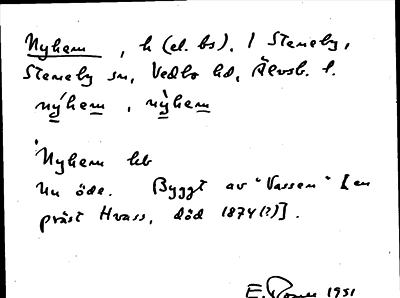 Nyhem, h (el. bs), 1 Steneby,
Steneby sn, Vedbo hd, Älvsb. l.
nýhem, nỳhem
Nyhem hb
Nu öde. Byggt av "Vassen" [en
präst Hvass, död 1874(?)].
E. 1951